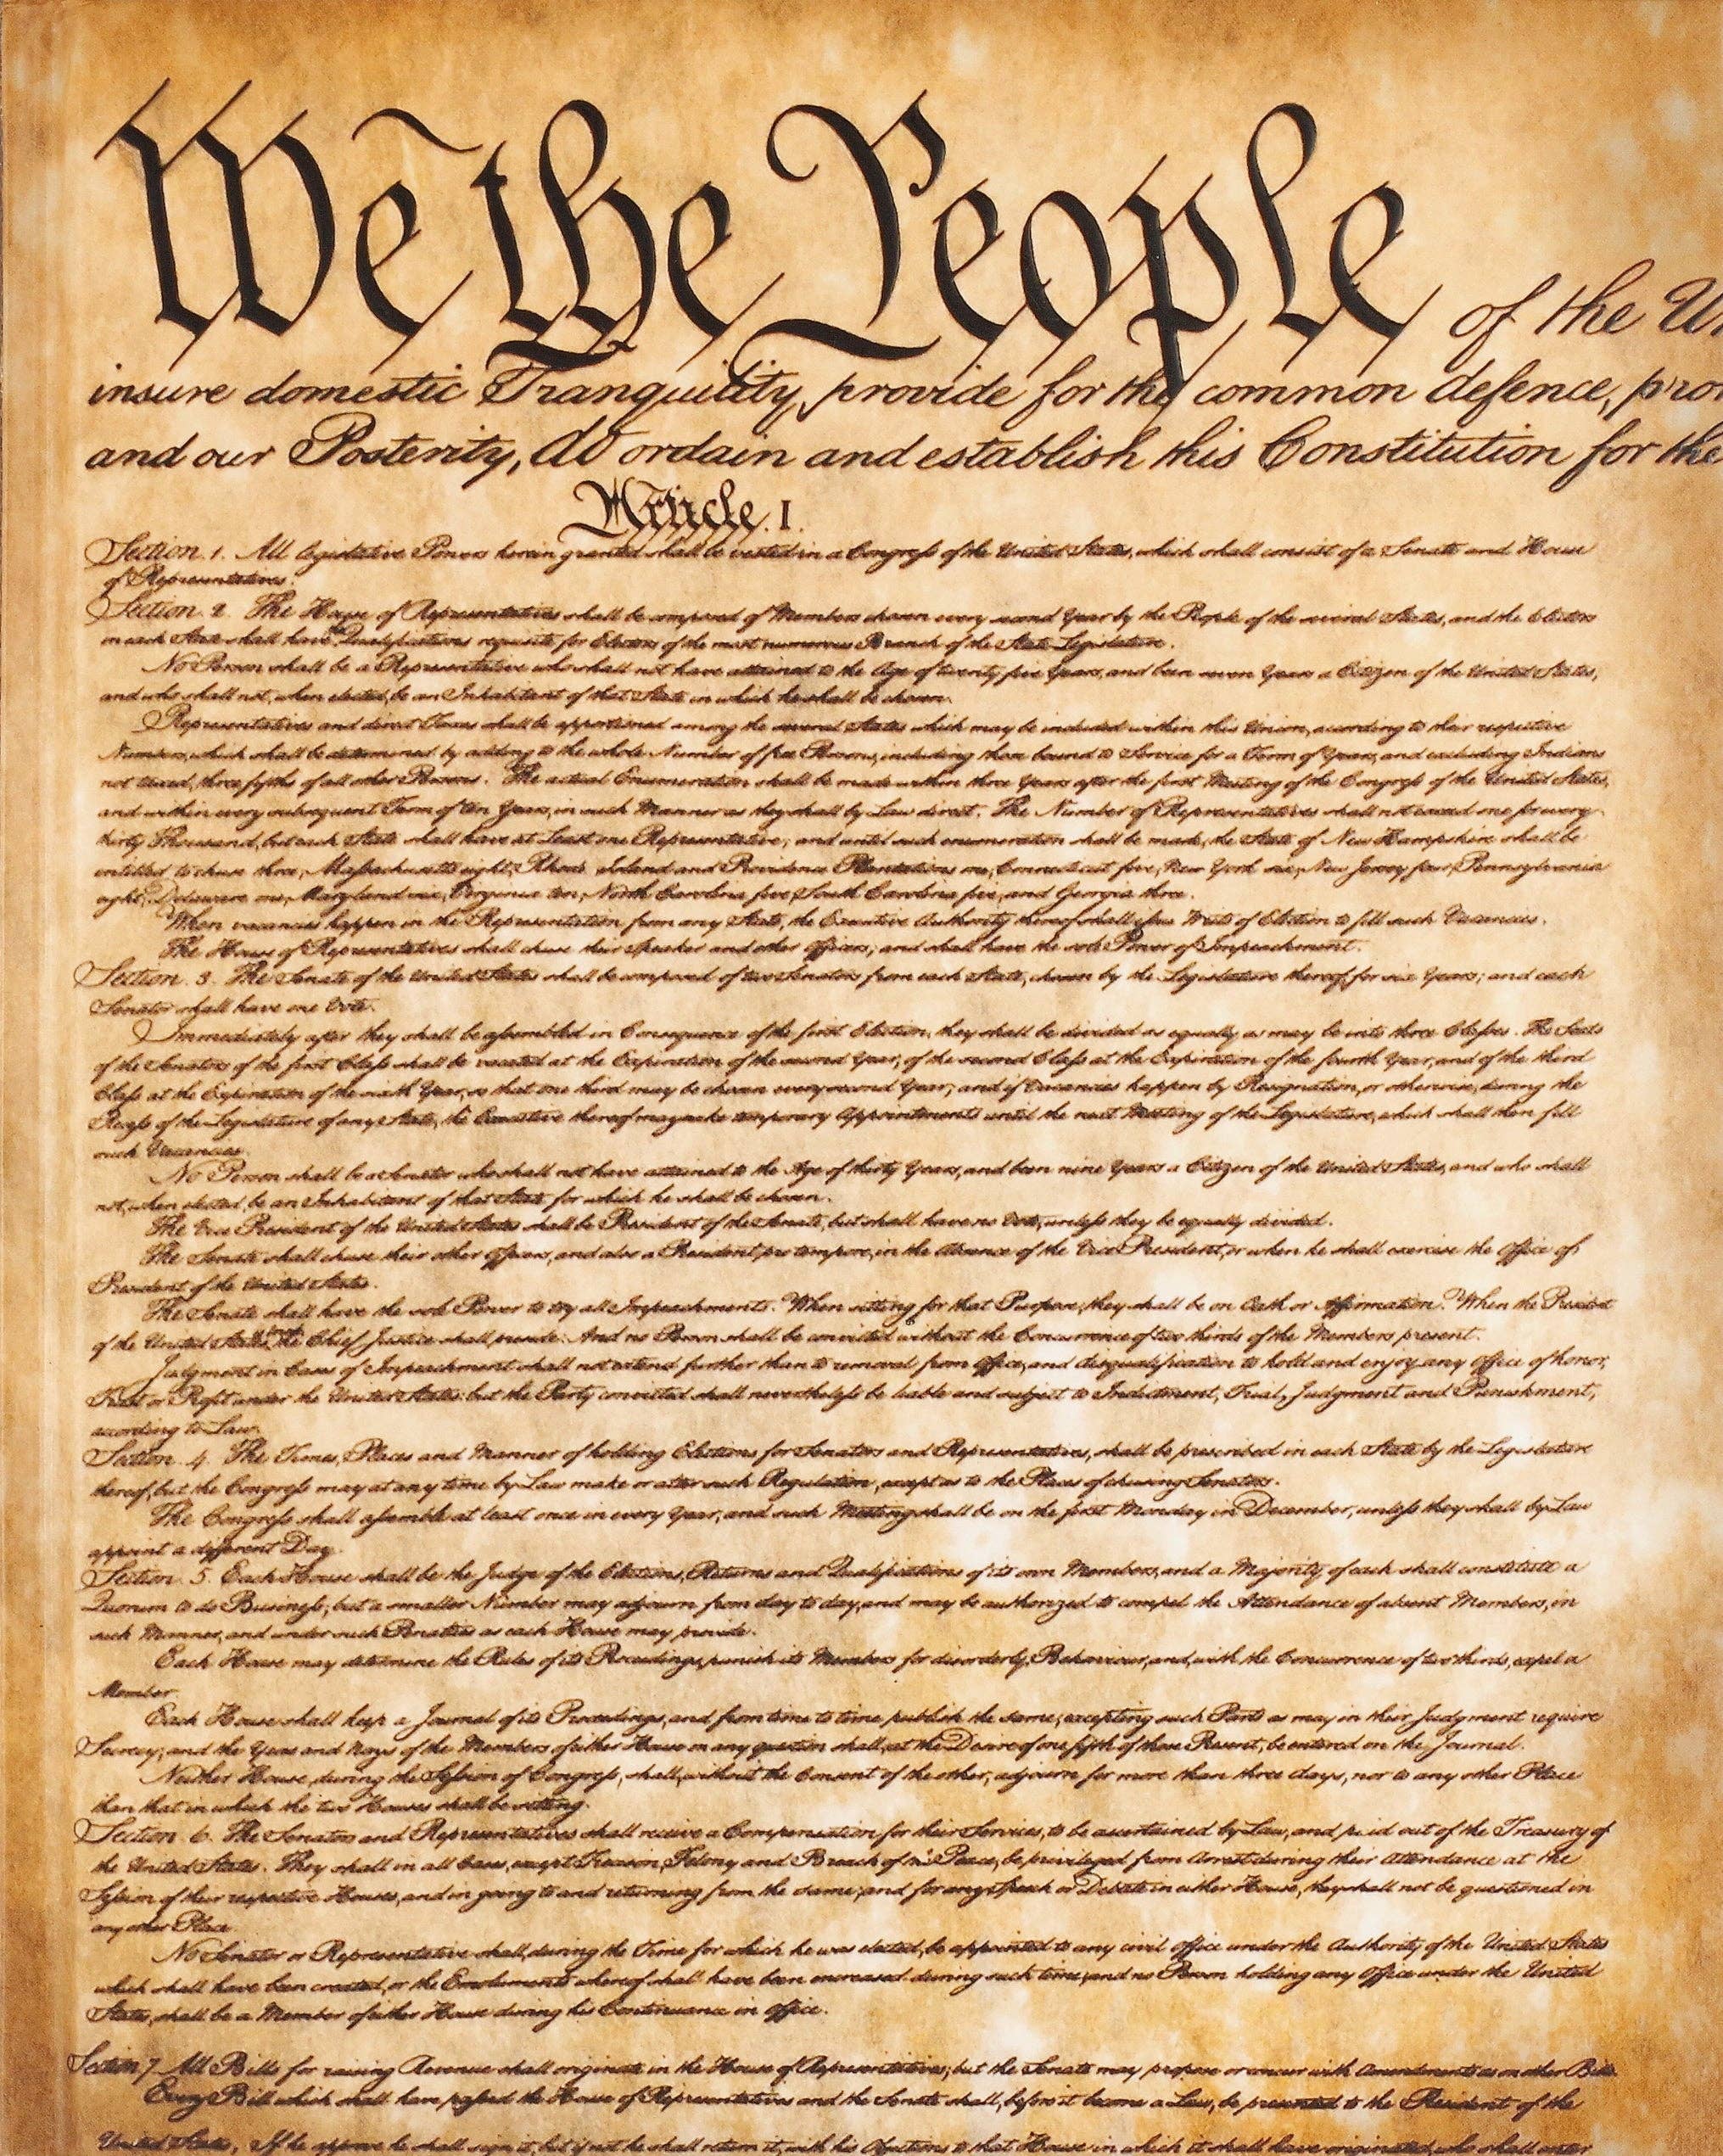 We the People of the Un
insure domestic Tranquility, provide for the common defence, pro
and our Posterity, do ordain and establish this Constitution for the
Article. I.
Section. 1. All legislative Powers herein granted shall be vested in a Congress of the United States, which shall consist of a Senate and House
of Representatives.
Section. 2. The House of Representatives shall be composed of Members chosen every second Year by the People of the several States, and the Electors
in each State shall have the Qualifications requisite for Electors of the most numerous Branch of the State Legislature.
No Person shall be a Representative who shall not have attained to the Age of twenty five Years, and been seven Years a Citizen of the United States,
and who shall not, when elected, be an Inhabitant of that State in which he shall be chosen.
Representatives and direct Taxes shall be apportioned among the several States which may be included within this Union, according to their respective
Numbers, which shall be determined by adding to the whole Number of free Persons, including those bound to Service for a Term of Years, and excluding Indians
not taxed, three fifths of all other Persons. The actual Enumeration shall be made within three Years after the first Meeting of the Congress of the United States,
and within every subsequent Term of ten Years, in such Manner as they shall by Law direct. The Number of Representatives shall not exceed one for every
thirty Thousand, but each State shall have at Least one Representative; and until such enumeration shall be made, the State of New Hampshire shall be
entitled to chuse three, Massachusetts eight, Rhode Island and Providence Plantations one, Connecticut five, New York six, New Jersey four, Pennsylvania
eight, Delaware one, Maryland six, Virginia ten, North Carolina five, South Carolina five, and Georgia three.
When vacancies happen in the Representation from any State, the Executive Authority thereof shall issue Writs of Election to fill such Vacancies.
The House of Representatives shall chuse their Speaker and other Officers; and shall have the sole Power of Impeachment.
Section. 3. The Senate of the United States shall be composed of two Senators from each State, chosen by the Legislature thereof, for six Years; and each
Senator shall have one Vote.
Immediately after they shall be assembled in Consequence of the first Election, they shall be divided as equally as may be into three Classes. The Seats
of the Senators of the first Class shall be vacated at the Expiration of the second Year, of the second Class at the Expiration of the fourth Year, and of the third
Class at the Expiration of the sixth Year, so that one third may be chosen every second Year; and if Vacancies happen by Resignation, or otherwise, during the
Recess of the Legislature of any State, the Executive thereof may make temporary Appointments until the next Meeting of the Legislature, which shall then fill
such Vacancies.
No Person shall be a Senator who shall not have attained to the Age of thirty Years, and been nine Years a Citizen of the United States, and who shall
not, when elected, be an Inhabitant of that State for which he shall be chosen.
The Vice President of the United States shall be President of the Senate, but shall have no Vote, unless they be equally divided.
The Senate shall chuse their other Officers, and also a President pro tempore, in the Absence of the Vice President, or when he shall exercise the Office of
President of the United States.
The Senate shall have the sole Power to try all Impeachments. When sitting for that Purpose, they shall be on Oath or Affirmation. When the President
of the United States is tried, the Chief Justice shall preside: And no Person shall be convicted without the Concurrence of two thirds of the Members present.
Judgment in Cases of Impeachment shall not extend further than to removal from Office, and disqualification to hold and enjoy any Office of honor,
Trust or Profit under the United States: but the Party convicted shall nevertheless be liable and subject to Indictment, Trial, Judgment and Punishment,
according to Law.
Section. 4. The Times, Places and Manner of holding Elections for Senators and Representatives, shall be prescribed in each State by the Legislature
thereof; but the Congress may at any time by Law make or alter such Regulation, except as to the Places of chusing Senators.
The Congress shall assemble at least once in every Year, and such Meeting shall be on the first Monday in December, unless they shall by Law
appoint a different Day.
Section. 5. Each House shall be the Judge of the Elections, Returns and Qualifications of its own Members, and a Majority of each shall constitute a
Quorum to do Business; but a smaller Number may adjourn from day to day, and may be authorized to compel the Attendance of absent Members, in
such Manner, and under such Penalties as each House may provide.
Each House may determine the Rules of its Proceedings, punish its Members for disorderly Behaviour, and, with the Concurrence of two thirds, expel a
Member.
Each House shall keep a Journal of its Proceedings, and from time to time publish the same, excepting such Parts as may in their Judgment require
Secrecy; and the Yeas and Nays of the Members of either House on any question shall, at the Desire of one fifth of those Present, be entered on the Journal.
Neither House, during the Session of Congress, shall, without the Consent of the other, adjourn for more than three days, nor to any other Place
than that in which the two Houses shall be sitting.
Section. 6. The Senators and Representatives shall receive a Compensation for their Services, to be ascertained by Law, and paid out of the Treasury of
the United States. They shall in all Cases, except Treason, Felony and Breach of the Peace, be privileged from Arrest during their Attendance at the
Session of their respective Houses, and in going to and returning from the same; and for any Speech or Debate in either House, they shall not be questioned in
any other Place.
No Senator or Representative shall, during the Time for which he was elected, be appointed to any civil Office under the Authority of the United States
which shall have been created, or the Emoluments whereof shall have been encreased during such time; and no Person holding any Office under the United
States, shall be a Member of either House during his Continuance in Office.
Section 7 All Bills for raising Revenue shall originate in the House of Representatives; but the Senate may propose or concur with Amendments as on other Bills.
Every Bill which shall have passed the House of Representatives and the Senate shall, before it become a Law, be presented to the President of the
United States, If he approve he shall sign it, but if not he shall return it, with his Objections to that House in which it shall have originated, who shall enter